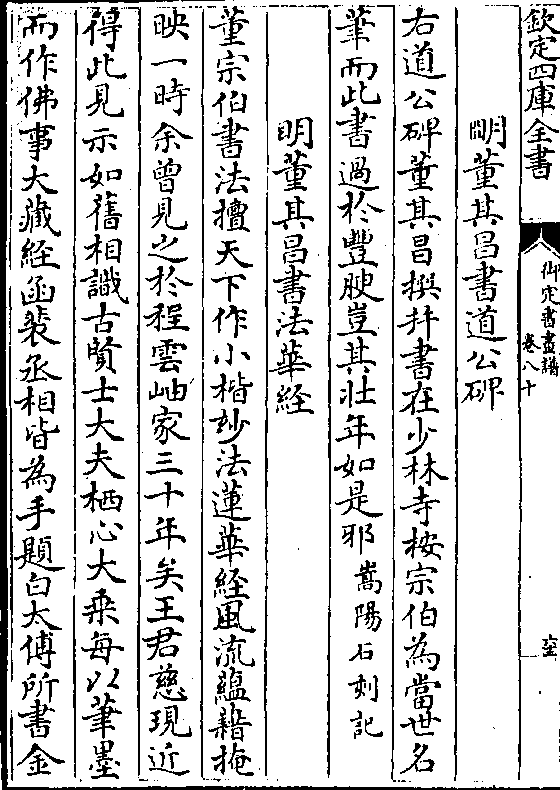 欽定四庫全書
御定書畫譜
卷八十
明董其昌書道公碑
右道公碑董其昌撰幷書在少林寺按宗伯為當世名
筆而此書過於豐腴豈其壯年如是邪嵩陽石刻記
明董其昌書法華經
董宗伯書法擅天下作小楷玅法蓮華經風流蘊藉掩
映一時余曾見之於程雲岫家三十年矣王君慈現近
得此見示如舊相識古賢士大夫栖心大乘每以筆墨
而作佛事大藏經函裴丞相皆為手題白太傅所書金